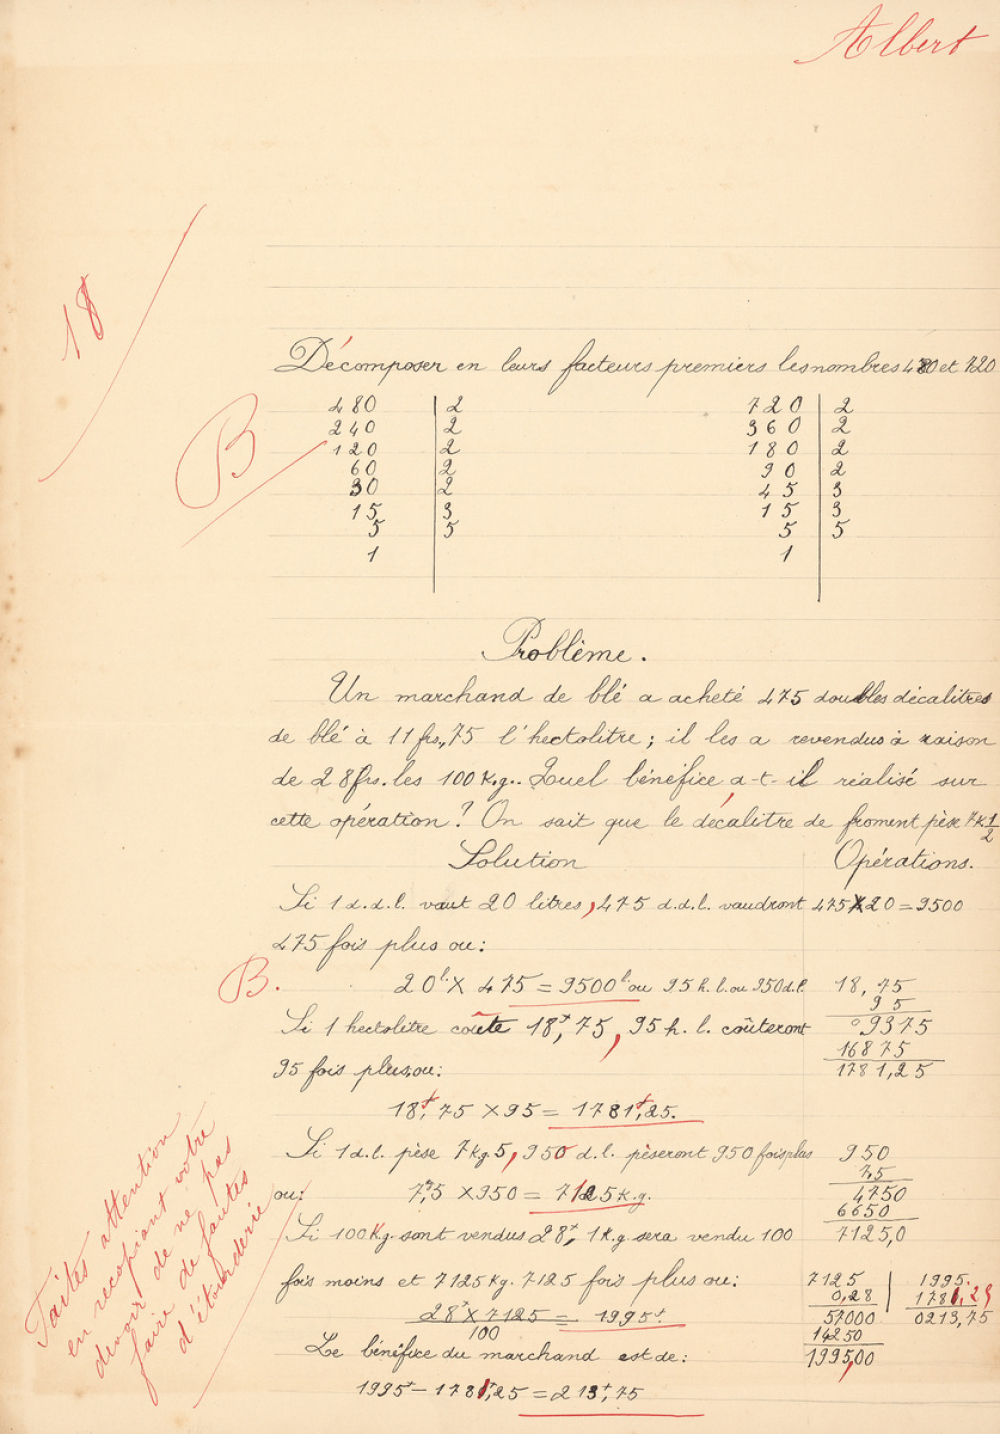 Albert
18
Décomposer en leurs facteurs premiers les nombres 480 et 720
B
480 | 2 720 | 2
240 | 2 360 | 2
120 | 2 180 | 2
60 | 2 90 | 2
30 | 2 45 | 3
15 | 3 15 | 3
5 | 5 5 | 5
1 1
Problème.
Un marchand de blé a acheté 475 doubles décalitres
de blé à 11 frs,75 l'hectolitre ; il les a revendus à raison
de 28 frs. les 100 K.g.. Quel bénéfice a-t-il réalisé sur
cette opération ? On sait que le décalitre de froment pèse 7K 1/2
Solution Opérations.
Si 1 d.d.l. vaut 20 litres, 475 d.d.l. vaudront 475 X 20 = 9500
475 fois plus ou :
B. 20l. X 475 = 9500l. ou 95 h.l. ou 950 d.l. 18,75
95
Si 1 hectolitre coûte 18f,75, 95 h.l. coûteront 09375
16875
95 fois plus, ou : 1781,25
18f,75 X 95 = 1781f,25.
Si 1 d.l. pèse 7 kg. 5, 950 d.l. pèseront 950 fois plus 950
7,5
ou : 7,5 X 950 = 7125 K.g. 4750
6650
Si 100 Kg. sont vendus 28f, 1 K.g sera vendu 100 7125,0
fois moins et 7125 Kg. 7125 fois plus ou : 7125 | 1995.
0,28 | 1781,25
28f X 7125 / 100 = 1995f. 57000 0213,75
14250
Le bénéfice du marchand est de : 1995,00
1995f - 1781f,25 = 213f,75
Faites attention
en recopiant votre
devoir de ne pas
faire de fautes
d'étourderie